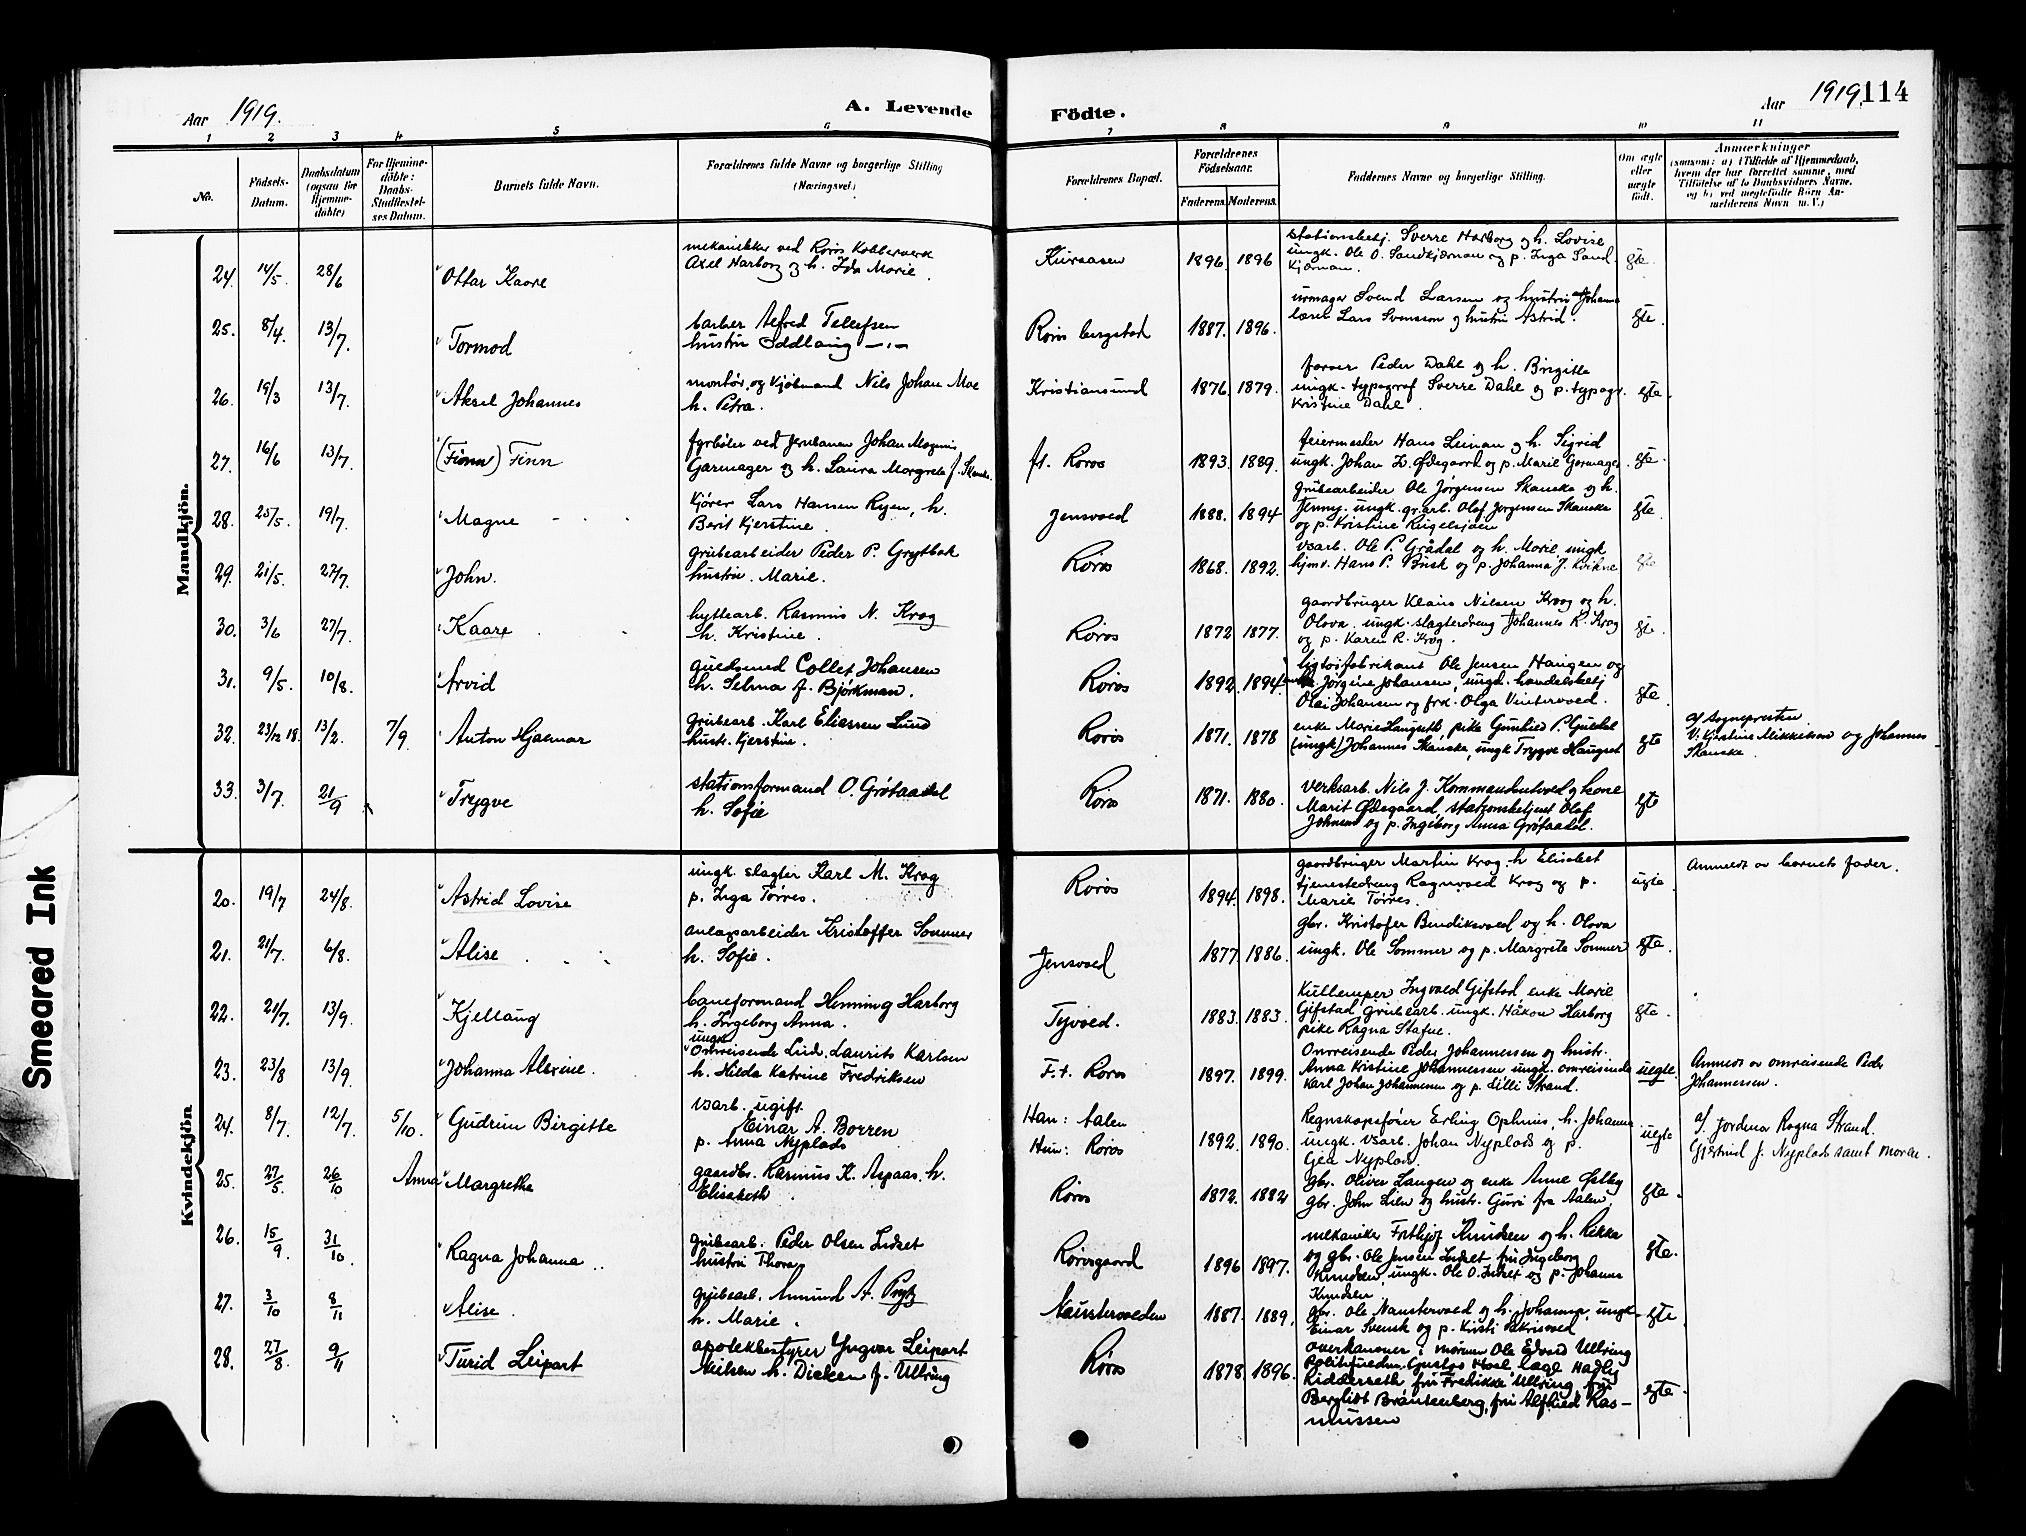 Aar 1919. A. Levende Födte. Aar 1919. 114
1 2 3 4 5 6 7 8 9 10 11
No.
Födsels-Datum.
Daabsdatum (ogsaa for Hjemmedöbte)
For Hjemmedöbte: Daabs-Stadfæstelses Datum.
Barnets fulde Navn.
Forældrenes fulde Navne og borgerlige Stilling (Næringsvei.)
Forældrenes Bopæl.
Forældrenes Födselsaar.
Faderens. Moderens.
Faddernes Navne og borgerlige Stilling.
Om ægte eller uægte födt.
Anmærkninger
(saasom: a) i Tilfælde af Hjemmedaab, hvem der har forrettet samme, med Tilföielse af to Daabsvidners Navne, og b) ved uegtefödte Börn Anmelderens Navn m. V.)
Mandkjön.
24. 14/5. 28/6 Ottar Kaare
mekanikker ved Røros Kobberverk
Axel Harborg og h. Ida Marie.
Kuraasen 1896. 1896
stationsbetj. Sverre Harborg og h. Lovise
ungk. Ole O. Sandkjærnan og p. Inga Sand-
kjærnan.
gte.
25. 8/4. 13/7. Tormod
barber Alfred Tellefsen
hustru Oddlaug
Røros bergstad 1887. 1896.
urmager Svend Larsen og hustru Johanna
lærer Lars Svensson og hustru Astrid.
gte.
26. 19/3 13/7. Aksel Johannes
montør og kjøbmand Nils Johan Moe
h. Petra.
Kristiansund 1876. 1879.
farver Peder Dahl og h. Birgitte
ungk. typograf Sverre Dahl og p. typogr.
Kristine Dahl.
gte.
27. 16/6 13/7. (Fionn) Finn
fyrbøter ved Jernbanen Johan Magnus
Garmager og h. Laura Margrete f. Skanke.
ft. Røros 1893. 1889.
feiermester Hans Leinan og h. Sigrid
ungk. Johan L. Ødegaard og p. Marie Garmager
gte.
28. 25/5. 19/7. Magne
kjører Lars Hansen Ryen, h.
Berit Kjerstine.
Jensvold 1888. 1894
grubearbeider Ole Jørgensen Skanke og h.
Jenny. ungk. gr.arb. Olaf Jørgensen Skanke
og p. Kristine Ringelsjøen
gte.
29. 21/5. 27/7. John.
grubearbeider Peder P. Grytbak
hustru Marie.
Røros 1868. 1892.
vsarb. Ole P. Grådal og h. Marie, ungk.
hjmv. Hans P. Busk og p. Johanna J. Kvikne
gte
30. 3/6 27/7. Kaare
hyttearb. Rasmus N. Krog
h. Kristine.
Røros 1872 1877.
gaardbruger Klaus Nilsen Krog og h.
Olava. ungk. slagterdreng Johannes R. Krog
og p. Karen R. Krog.
gte.
31. 9/5. 10/8. Arvid
guldsmed Collet Johansen
h. Selma f. Björkman.
Røros 1892. 1894
Ole Jensen Haugen og
Jørgine Johansen, ungk. handelsbetj
Olai Johansen og frk. Olga Vintervold.
gte.
32. 23/12 18. 13/2. 7/9. Anton Hjalmar
grubearb. Karl Eliassen Lund
hustr. Kjerstine.
Røros 1871. 1878
enke Marie Haugseth, pike Gunhild P. Guldal
(ungk) Johannes Skanke, ungk Trygve Haugset
gte
af Sognepresten
V: Kjerstine Mikkelsen og Johannes
Skanke.
33. 3/7. 21/9 Trygve
stationsformand O. Grötaadal
h. Sofie
Røros 1871. 1880.
Verksarb. Nils J. Kommandantvold og kone
Marit Ødegaard, stationsbetjent Olaf
Johnsen og p. Ingeborg Anna Grötaadal.
gte
Kvindekjön.
20. 19/7 24/8. Astrid Lovise
ungk. slagter Karl M. Krog
p. Inga Tørres.
Røros 1894. 1898.
gaardbruger Martin Krog. h Elisabet
tjenestedreng Ragnvald Krog og p.
Marie Tørres.
ugte.
Anmeldt av barnets fader.
21. 21/7. 6/8. Alise
anlægsarbeider Kristoffer Sommer
h. Sofie.
Jensvold 1877. 1886.
gbr. Kristofer Bendiksvold og h. Olava
ungk. Ole Sommer og p. Margrete Sommer
gte.
22. 21/7. 13/9. Kjellaug
baneformand Henning Harborg
h. Ingeborg Anna.
Tyvold. 1883. 1883.
Kullemper Ingvald Gifstad, enke Marie
Gifstad Grubearb. ungk. Håkon Harborg
pike Ragna Stafne.
gte.
23. 23/8 13/9. Johanna Alvine.
ungk.
Omreisende Lud. Laurits Karlsen
h. Hilda Katrine Fredriksen
F.t. Røros 1897. 1899.
Omreisende Peder Johannessen og hustr.
Anna Kristine Johannessen ungk. omreisende
Karl Johan Johannessen og p. Lilli Strand.
uegte.
Anmeldt av omreisende Peder
Johannessen.
24. 8/7. 12/7. 5/10. Gudrun Birgitte
vsarb. ugift
Einar A. Borren
p. Anna Nyplads
Han: Aalen
Hun: Røros 1892. 1890.
Regnskapsfører Erling Ophus, h. Johanna
ungk. vsarb. Johan Nyplads og p.
Gea Nyplads.
uegte
af Jordmor Ragna Strand.
Gjertrud J. Nyplads samt moren.
25. 27/5. 26/10 Anna Margrethe
gaardbr. Rasmus K. Aspaas, h.
Elisabeth.
Røros 1872. 1882
gbr. Oliver Langen og enke Anne Galby
gbr. John Lien og hustr. Guri fra Aalen.
gte.
26. 15/9. 31/10. Ragna Johanna
grubearb. Peder Olsen Indset
hustru Thora.
Rørosgaard 1896 1897.
mekaniker Fritjof Knudsen og h. Rikka
og gbr. Ole Jensen Indset fru Ingeborg
Knudsen, ungk. Ole O. Indset og p. Johanna
Knudsen
gte.
27. 3/10 8/11 Alise.
grubearb. Amund A. Prytz
h. Marie.
Naustervolden 1887. 1889.
gbr. Ole Naustervold og h. Johanna, ungk.
Einar Svensk og p. Kristi
gte.
28. 27/8. 9/11 Turid Leipart
apotekbestyrer Yngvar Leipart
Nielsen h. Dicken f. Ullring
Røros 1878 1896.
overkanoner i marinen Ole Edvard Ullring
Politifuldm. Gustav Hoel læge Hadly
Ridderseth fru Fredrikke Ullring, fru
Bergliot Brantzenberg, fru Alfhild Ras-
mussen
gte.
Smeared Ink